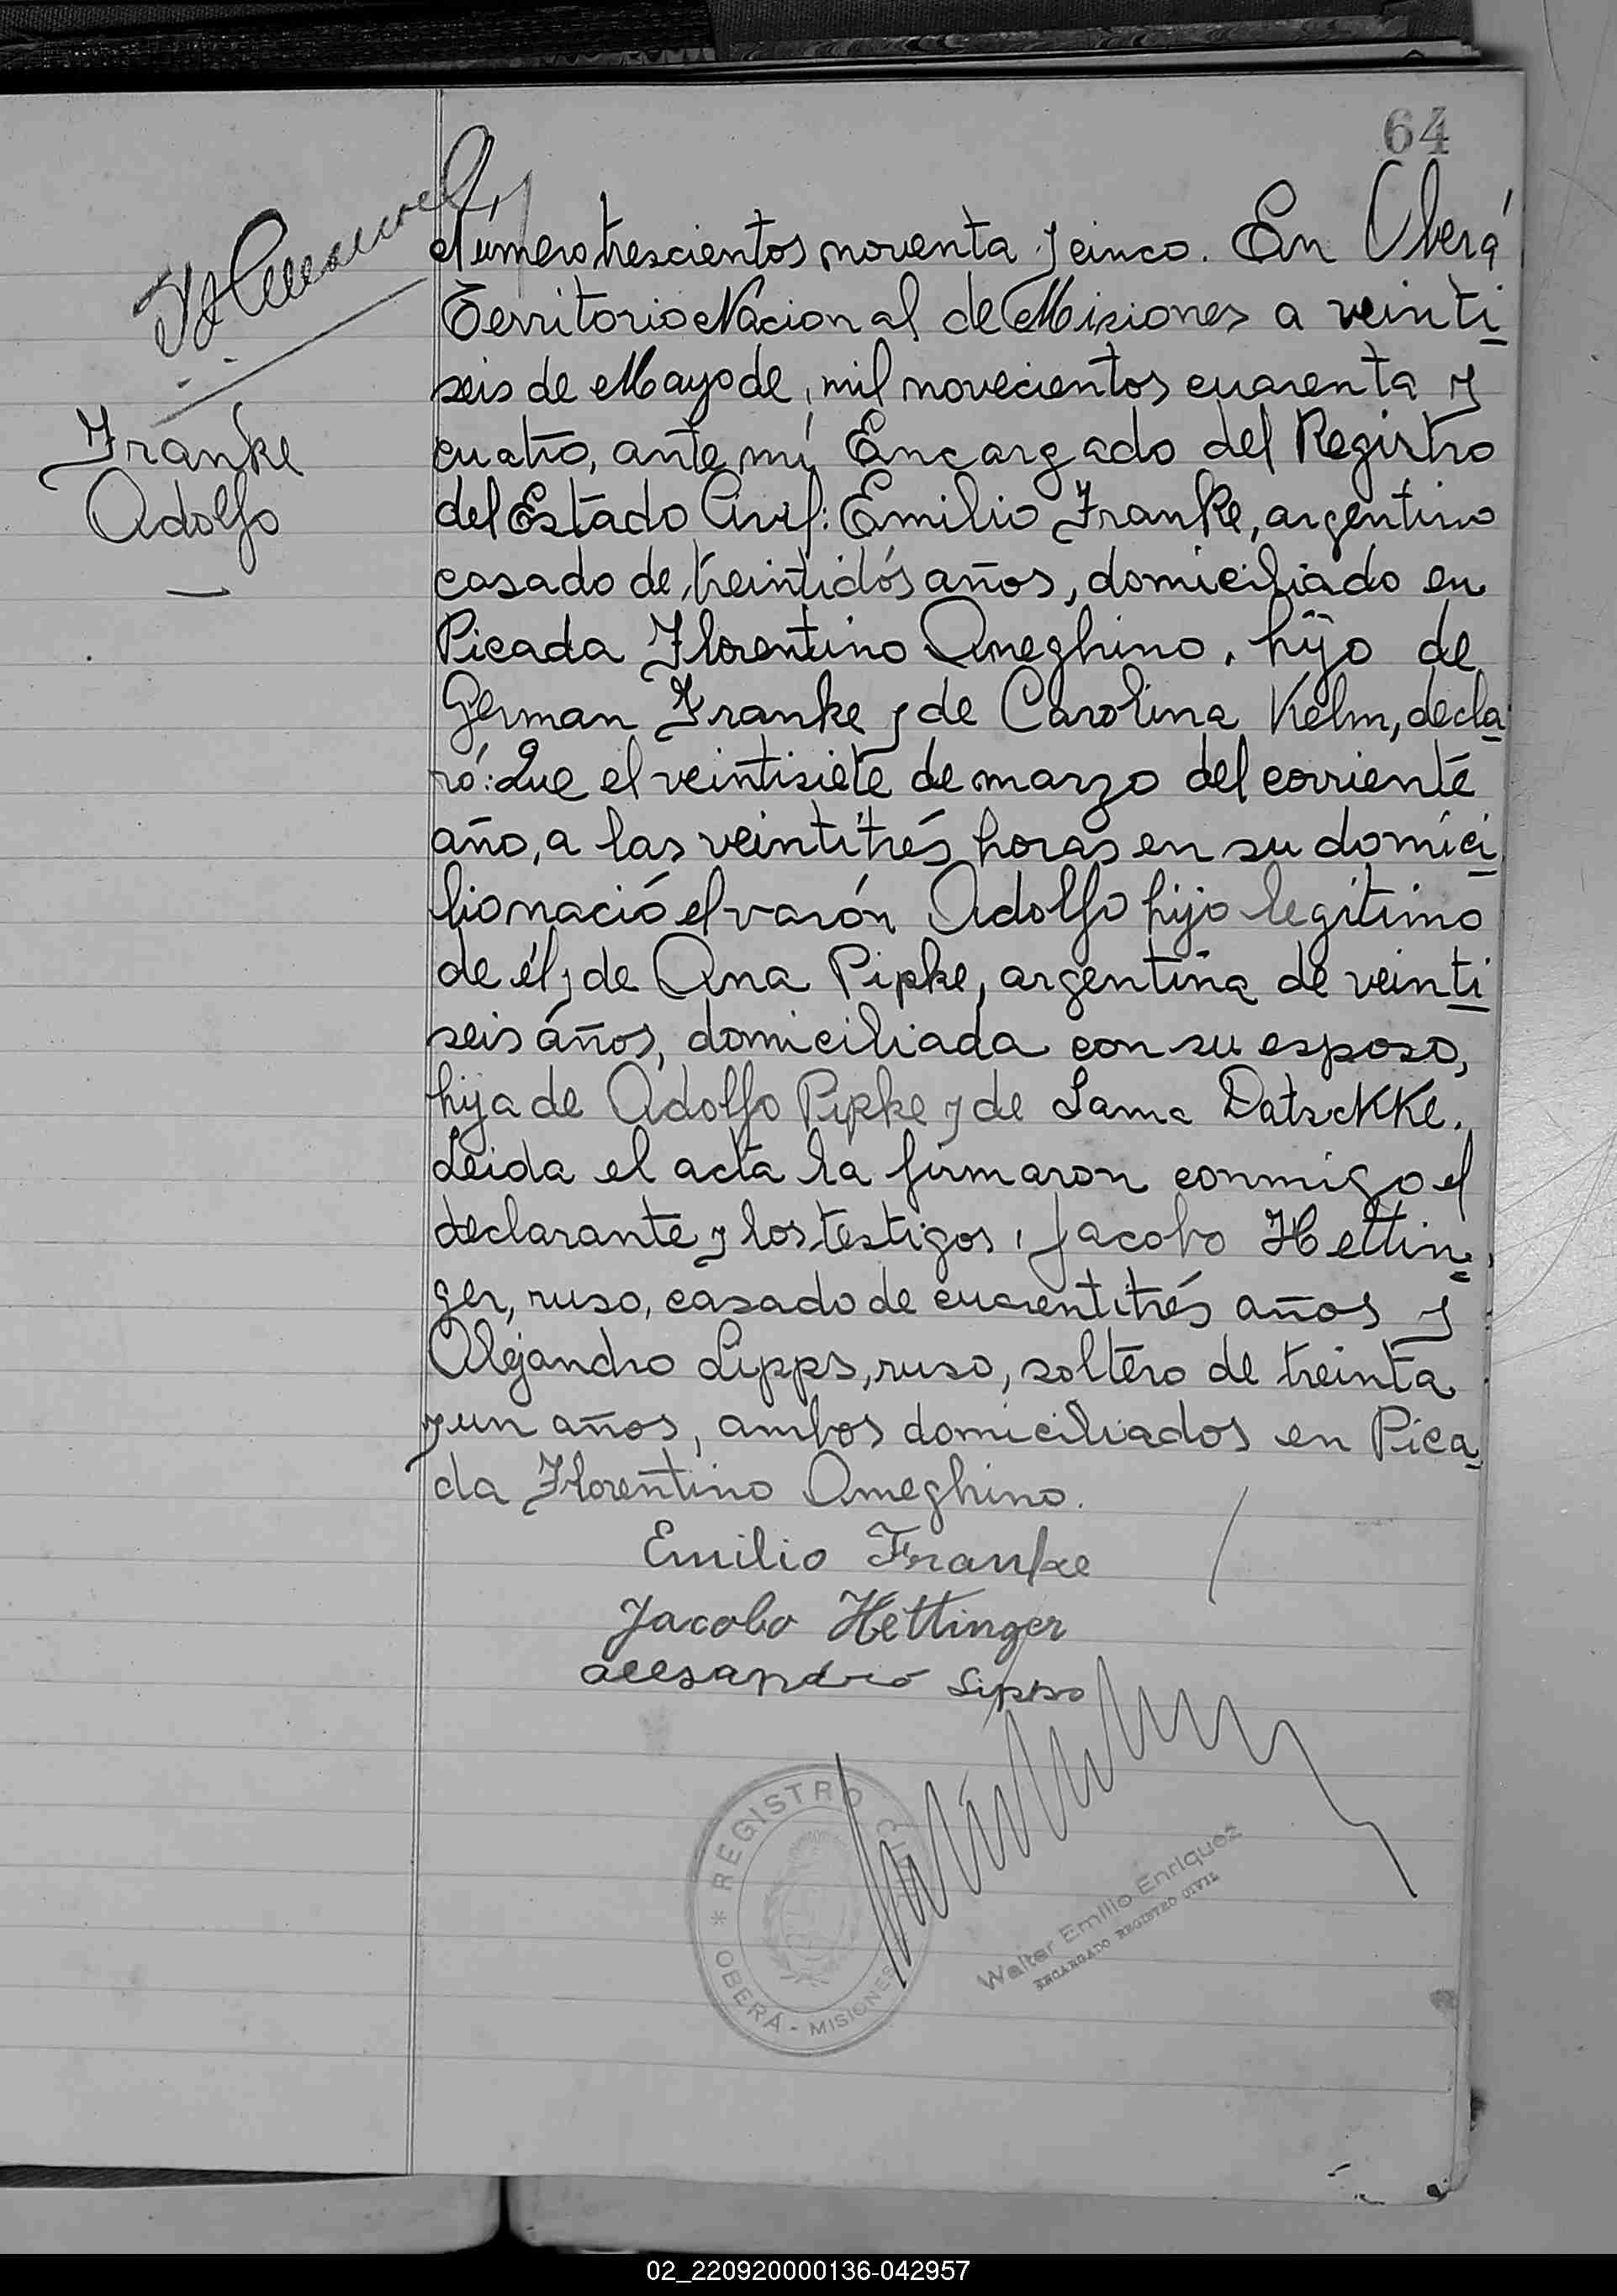 64
Franke
Adolfo
Número trescientos noventa y cinco. En Oberá
Territorio Nacional de Misiones a veinti
seis de Mayo de, mil novecientos cuarenta y
cuatro, ante mí Encargado del Registro
del Estado Civil: Emilio Franke, argentino
casado de, treintidós años, domiciliado en
Picada Florentino Ameghino, hijo de
German Franke y de Carolina Kelm, decla
ró: Que el veintisiete de marzo del corriente
año, a las veintitrés horas en su domici
lio nació el varón Adolfo hijo legítimo
de él y de Ana Pipke, argentina de veinti
seis años, domiciliada con su esposo,
hija de Adolfo Pipke y de Datsckke.
Leida el acta la firmaron conmigo el
declarante y los testigos, Jacobo Hettin
ger, ruso, casado de cuarentitrés años y
Alejandro Lipps, ruso, soltero de treinta
y un años, ambos domiciliados en Pica
da Florentino Ameghino.
Emilio Franke
Jacobo Hettinger
Alesandro Lipps
REGISTRO CIVIL
* OBERÁ - MISIONES
Walter Emilio Enriquez
ENCARGADO REGISTRO CIVIL
02_220920000136-042957